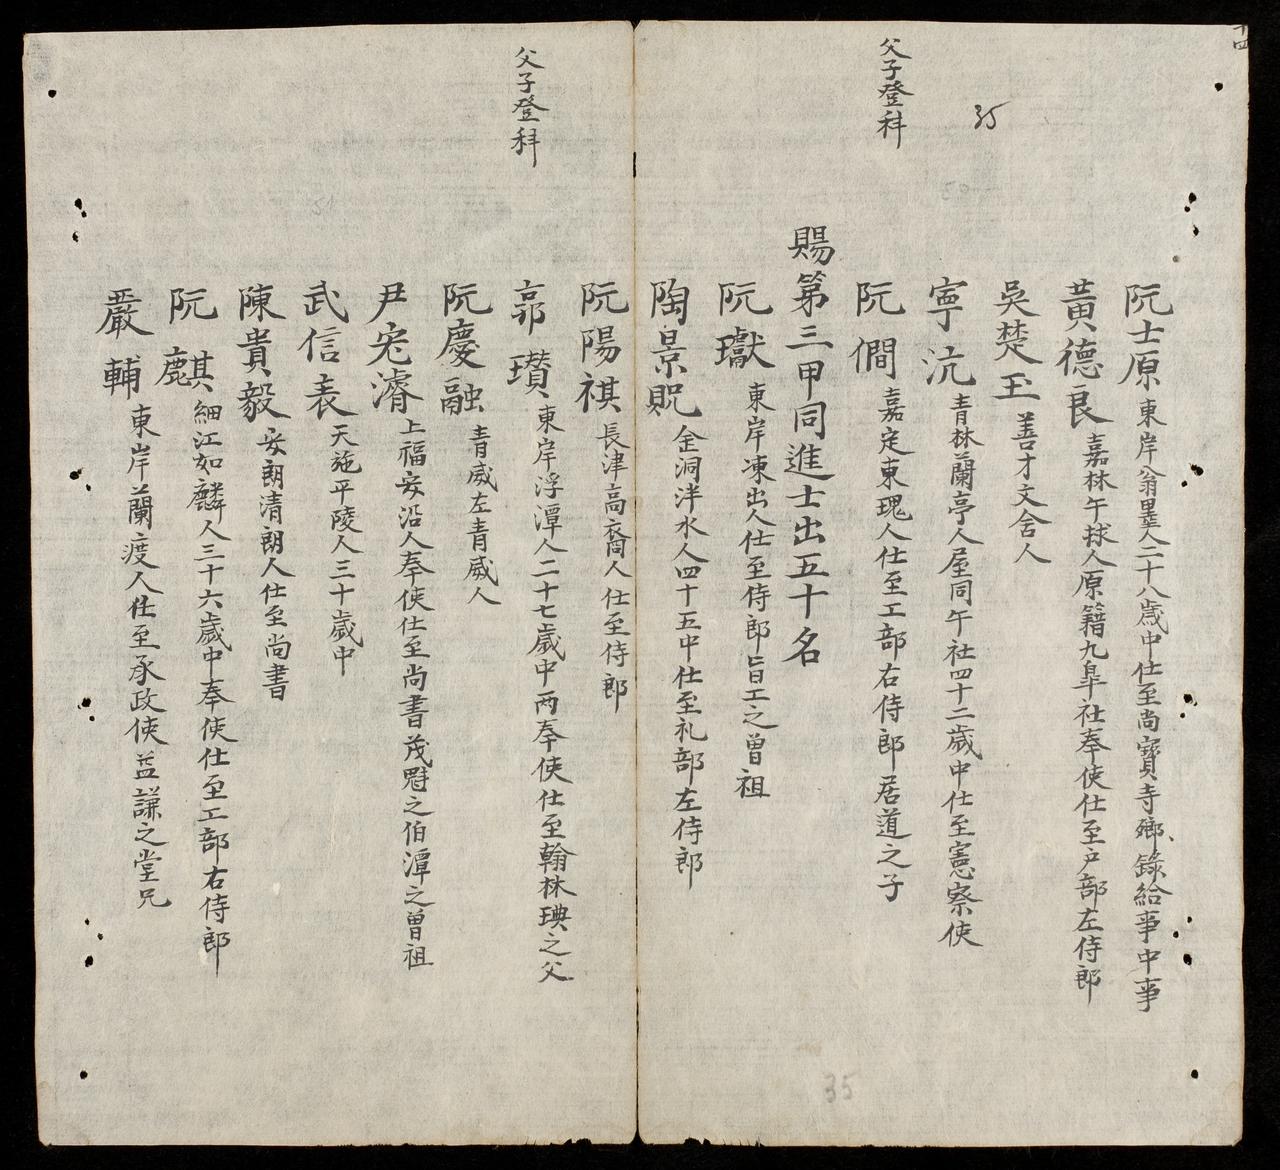 十四
35
阮士原東岸翁墨人二十八歲中仕至尚寶寺鄉錄給事中事
黃德良嘉林午捄人原籍九皐社奉使仕至戶部左侍郎
吳楚玉善才文舍人
寧沆青林蘭亭人屋同午社四十二歲中仕至憲察使
父子登科
阮僩嘉定東瑰人仕至工部右侍郎居道之子
賜第三甲同進士出五十名
阮瓛東岸凍出人仕至侍郎旨工之曾祖
陶景貺金洞泮水人四十五中仕至礼部左侍郎
阮陽祺長津高裔人仕至侍郎
父子登科
郭瓚東岸浮潭人二十七歲中两奉使仕至翰林㻁之父
阮慶融青威左青威人
尹宏濬上福安沿人奉使仕至尚書茂之伯潭之曾祖
武信表天施平陵人三十歲中
陳貴毅安朗清朗人仕至尚書
阮麒細江如麟人三十六歲中奉使仕至工部右侍郎
嚴輔東岸蘭渡人仕至承政使益謙之堂兄
35